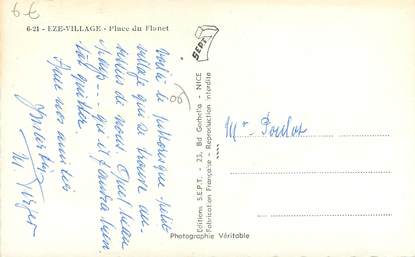 6€
6-21 - EZE-VILLAGE - Place du Planet
Voilà le pittoresque petit
village qui se trouve au-
dessus de nous. Quel beau
pays --- qu'il faudra bien-
tôt quitter.
Avec nos amitiés
SEPT
Editions S.E.P.T. - 23, Bd Gorbella - NICE
Fabrication Française - Reproduction interdite
Photographie Véritable
Mr Poulot